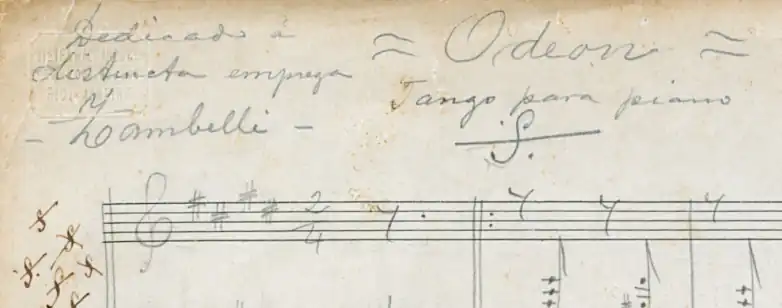 Dedicado á
distincta empreza
Zambelli
= Odeon =
Tango para piano
2
4